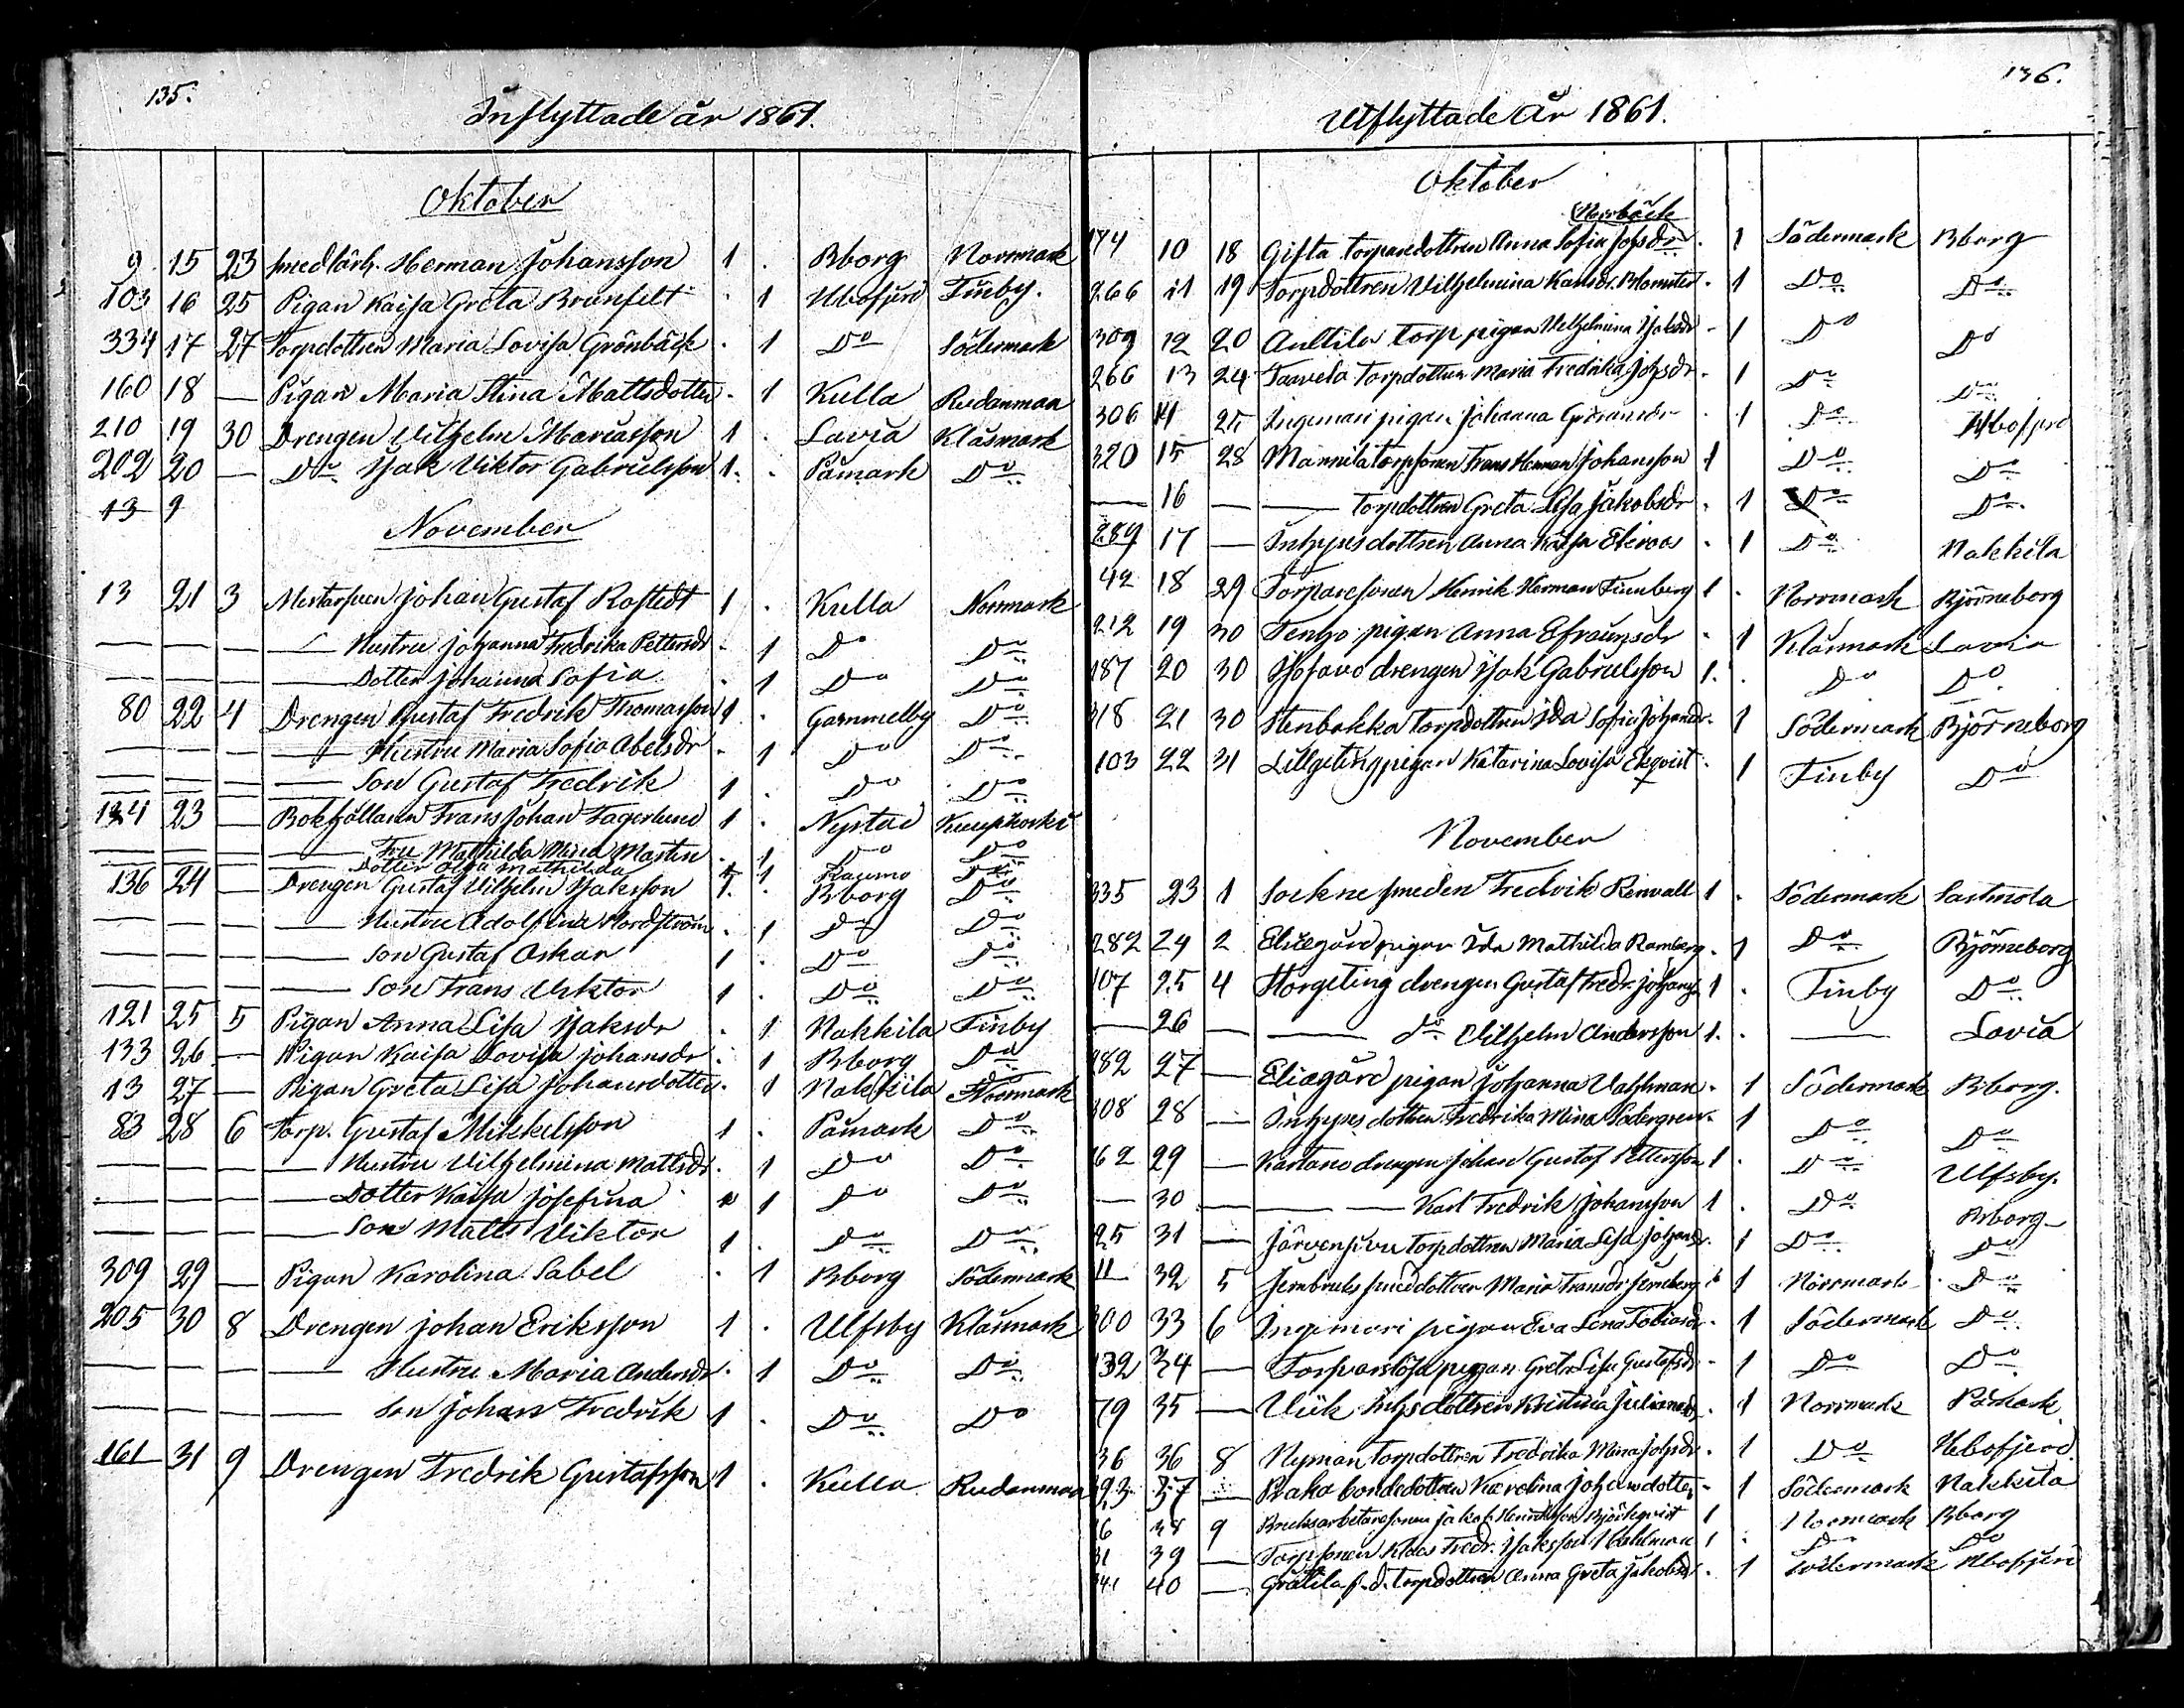 135.
Inflyttade år 1861.
Oktober
9 15 23 smedlärl. Herman Johansson 1 . Bborg Norrmark
103 16 25 Pigan Kaisa Greta Brunfelt . 1 Hbofjerd Finby.
334 17 27 Torpdottren Maria Lovisa Grönbäck . 1 Do Södermark
160 18 — Pigan Maria Stina Mattsdotter . 1 Kulla Rudanmaa
210 19 30 Drengen Vilhelm Mariasson 1 . Lavia Klåsmark
202 20 — Do Isak Viktor Gabrielsson 1 . Påmark Do
13 9
November
13 21 3 Johan Gustaf Rostedt 1 . Kulla Norrmark
— — — — Hustru Johanna Fredrika Pettersdr . 1 Do Do
— — — — Dotter Johanna Sofia . 1 Do Do
80 22 4 Drengen Gustaf Fredrik Thomasson 1 . Gammelby Do
— — — — Hustru Maria Sofia Abelsdr . 1 Do Do
— — — — Son Gustaf Fredrik 1 . Do Do
134 23 — Bokhållaren Frans Johan Fagerlund 1 . Nystad
— — — — Fru Mathilda Maria Martin . 1 Do Do
— — — — Dotter Olga Mathilda 1 Raumo Do
136 24 — Drengen Gustaf Vilhelm Isaksson 1 . Bborg Do
— — — — Hustru Adolfina Nordström . 1 Do Do
— — — — Son Gustaf Oskar 1 . Do Do
— — — — Son Frans Viktor 1 . Do Do
121 25 5 Pigan Anna Lisa Isaksdr . 1 Nakkila Finby
133 26 — Pigan Kaisa Lovisa Johansdr . 1 Bborg Do
13 27 — Pigan Greta Lisa Johansdotter . 1 Nakkila Norrmark
83 28 6 Torp. Gustaf Mikkelsson 1 . Påmark Do
— — — — Hustru Vilhelmina Mattsdr . 1 Do Do
— — — — Dotter Kaisa Josefina . 1 Do Do
— — — — Son Matts Viktor 1 . Do Do
309 29 — Pigan Karolina Sabel . 1 Bborg Södermark
205 30 8 Drengen Johan Eriksson 1 . Ulfsby Klåsmark
— — — — Hustru Maria Andersdr . 1 Do Do
— — — — Son Johan Fredrik 1 . Do Do
161 31 9 Drengen Fredrik Gustafsson 1 . Kulla Rudanmaa
136.
Utflyttade År 1861.
Oktober
Norrbäck
174 10 18 Gifta torparedottren Anna Sofia Johsdr . 1 Södermark Bborg
266 11 19 Torpdottren Vilhelmina Karlsdr Blomster . 1 Do Do
309 12 20 Anttila torp pigan Vilhelmina Isaksdr . 1 Do Do
266 13 24 Taavela torpdottren Maria Fredrika Johsdr . 1 Do Do
306 14 25 Ingemari pigan Johanna Göransdr . 1 Do Hbofjerd
320 15 28 Mannila torpsonen Frans Herman Johansson 1 Do Do
— 16 — — torpdottren Greta Lisa Jakobsdr . 1 Do Do
289 17 — Inhysesdottren Anna Kaisa Ekroos . 1 Do Nakkila
42 18 29 Torparesonen Henrik Herman Finnberg 1 . Norrmark Björneborg
212 19 30 Tenho pigan Anna Efraimsdr . 1 Klåsmark Lavia
187 20 30 Isotavo drengen Isak Gabrielsson 1 . Do Do
318 21 30 Stenbakka torpdottren Ida Sofia Johansdr . 1 Södermark Björneborg
103 22 31 Lillgeting pigan Katarina Lovisa Ekqvist . 1 Finby Do
November
335 23 1 Sockne smeden Fredrik Renvall 1 . Södermark Sastmola
282 24 2 Eliægård pigan Ida Mathilda Ramberg . 1 Do Björneborg
107 25 4 Storgeting drengen Gustaf Fredr. Johanss 1 . Finby Do
— 26 — — do Vilhelm Andersson 1 . — Lavia
282 27 — Eliægård pigan Johanna Vahlman . 1 Södermark Bborg.
308 28 — Inhyses dottren Fredrika Mina Södergren . 1 Do Do
162 29 — Kartano drengen Johan Gustaf Pettersson 1 . Do Ulfsby.
— 30 — — — Karl Fredrik Johansson 1 . Do Bborg
25 31 — Järvensivu torpdottren Maria Lisa Johansdr. 1 Do Do
11 32 5 Jernbruks smeddottren Maria Fransdr Jernberg . 1 Norrmark Do
300 33 6 Ingemari pigan Eva Lena Tobiasdr . 1 Södermark Do
132 34 — pigan Greta Lisa Gustafsdr . 1 Do Do
79 35 — Viik Inhysdottren Kristina Juliana . 1 Norrmark Påmark
36 36 8 Nyman torpdottren Fredrika Mina Johsdr . 1 Do Hbofjerd.
293 37 — bondedottren Karolina Johansdotter . 1 Södermark Nakkila
6 38 9 Bruksarbetaresonen Jakob Henriksson Björkqvist 1 Norrmark Bborg
31 39 — Torpsonen Klas Fredr. Isaksson Vahlman 1 . Do Do
341 40 — Grätila f.d. torpdottren Anna Greta Jakobsdr . 1 Södermark Hbofjerd